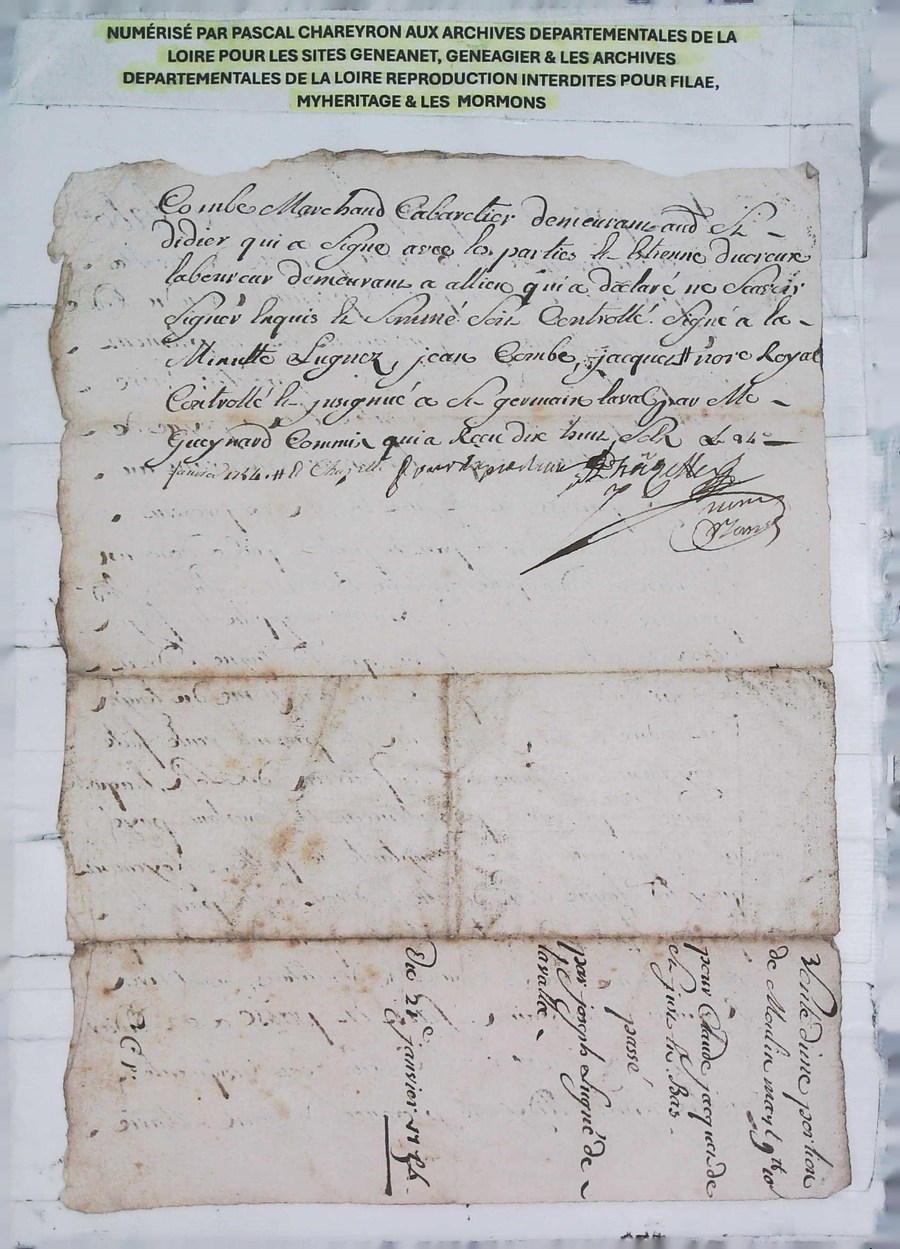 NUMÉRISÉ PAR PASCAL CHAREYRON AUX ARCHIVES DEPARTEMENTALES DE LA
LOIRE POUR LES SITES GENEANET, GENEAGIER & LES ARCHIVES
DEPARTEMENTALES DE LA LOIRE REPRODUCTION INTERDITES POUR FILAE,
MYHERITAGE & LES MORMONS
Combe Marchand Cabaretier demeurant aud St
didier qui a signe avec les parties Et Etienne ducreux
laboureur demeurant a allieu qui a declaré ne scavoir
signer Enquis Et sommé soit Controllé. signé a la
Minutte Lugnez, jean Combe, jacquet nore Royal
Controllé Et jnsignué a St germain laval par Me
Gueynard Commis qui a Receu dix huit sols Le 24e
janvier 1764.
Vente dune portion
de Moulin
pour Claude jacques de
passé
par joseph Lugné de
lavallee
Du 21e janvier 1764